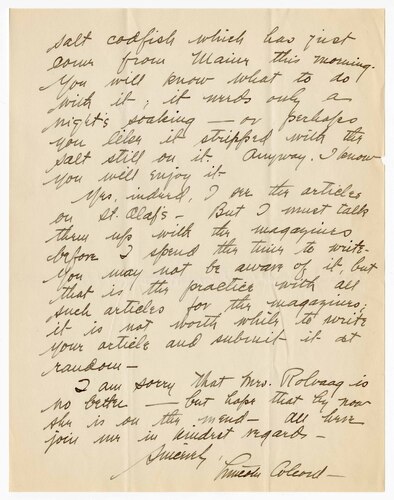 salt codfish which has just
come from Maine this morning.
You will know what to do
with it; it needs only a
night's soaking — or perhaps
you like it stripped with the
salt still on it. Anyway, I know
you will enjoy it.
Yes, indeed, I see the articles
on St. Olaf's — But I must talk
them up with the magazines
before I spend the time to write.
You may not be aware of it, but
that is the practice with all
such articles for the magazines;
it is not worth while to write
your article and submit it at
random —
I am sorry that Mrs. Rolvaag is
no better — but hope that by now
she is on the mend — All here
join me in kindest regards —
Sincerely
Lincoln Colcord —